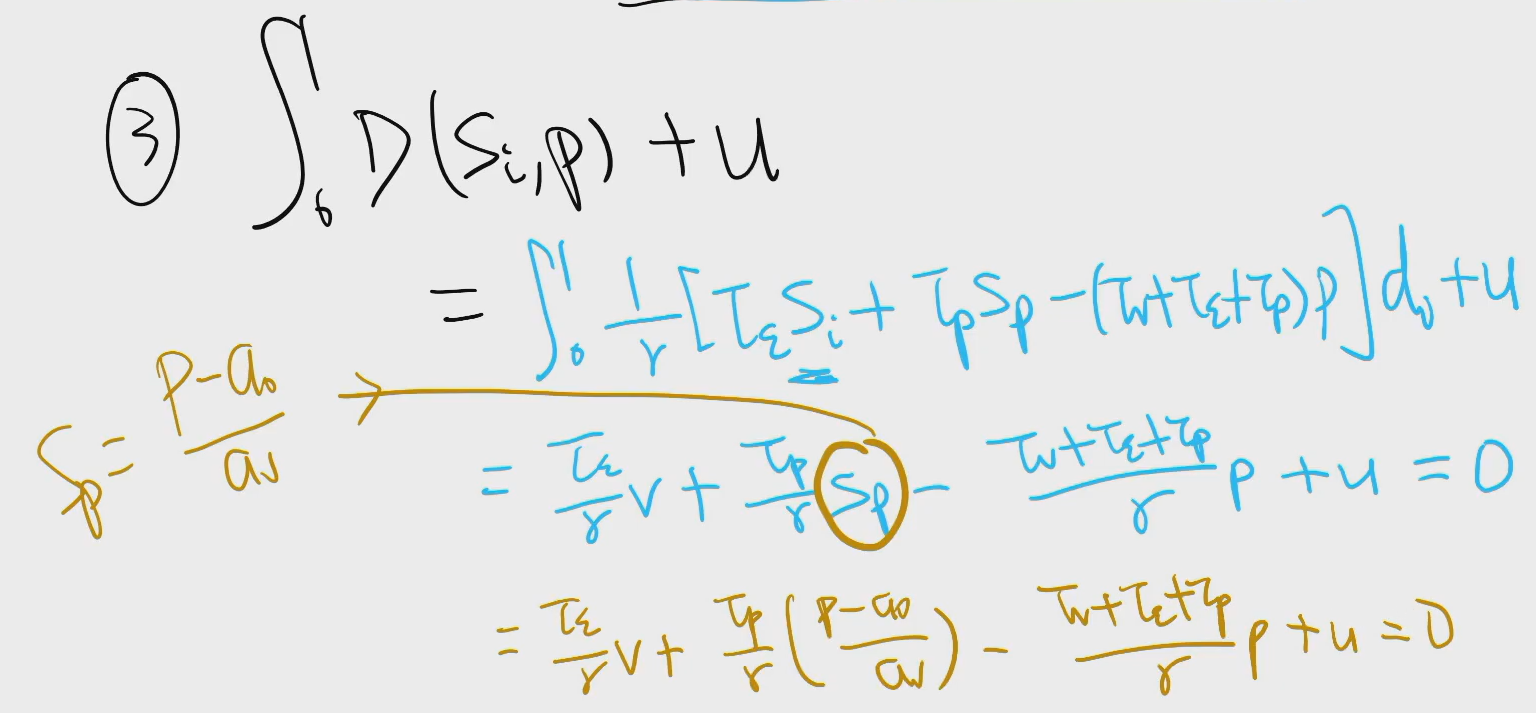 ③ ∫₀¹ D(Sᵢ,p) + u
= ∫₀¹ 1/γ [τ_ε Sᵢ + τ_p S_p - (τ_v + τ_ε + τ_p) p] dᵢ + u
S_p = (p - a₀)/a_v → = τ_ε/γ v + τ_p/γ S_p - (τ_v + τ_ε + τ_p)/γ p + u = 0
= τ_ε/γ v + τ_p/γ ((p - a₀)/a_v) - (τ_v + τ_ε + τ_p)/γ p + u = 0